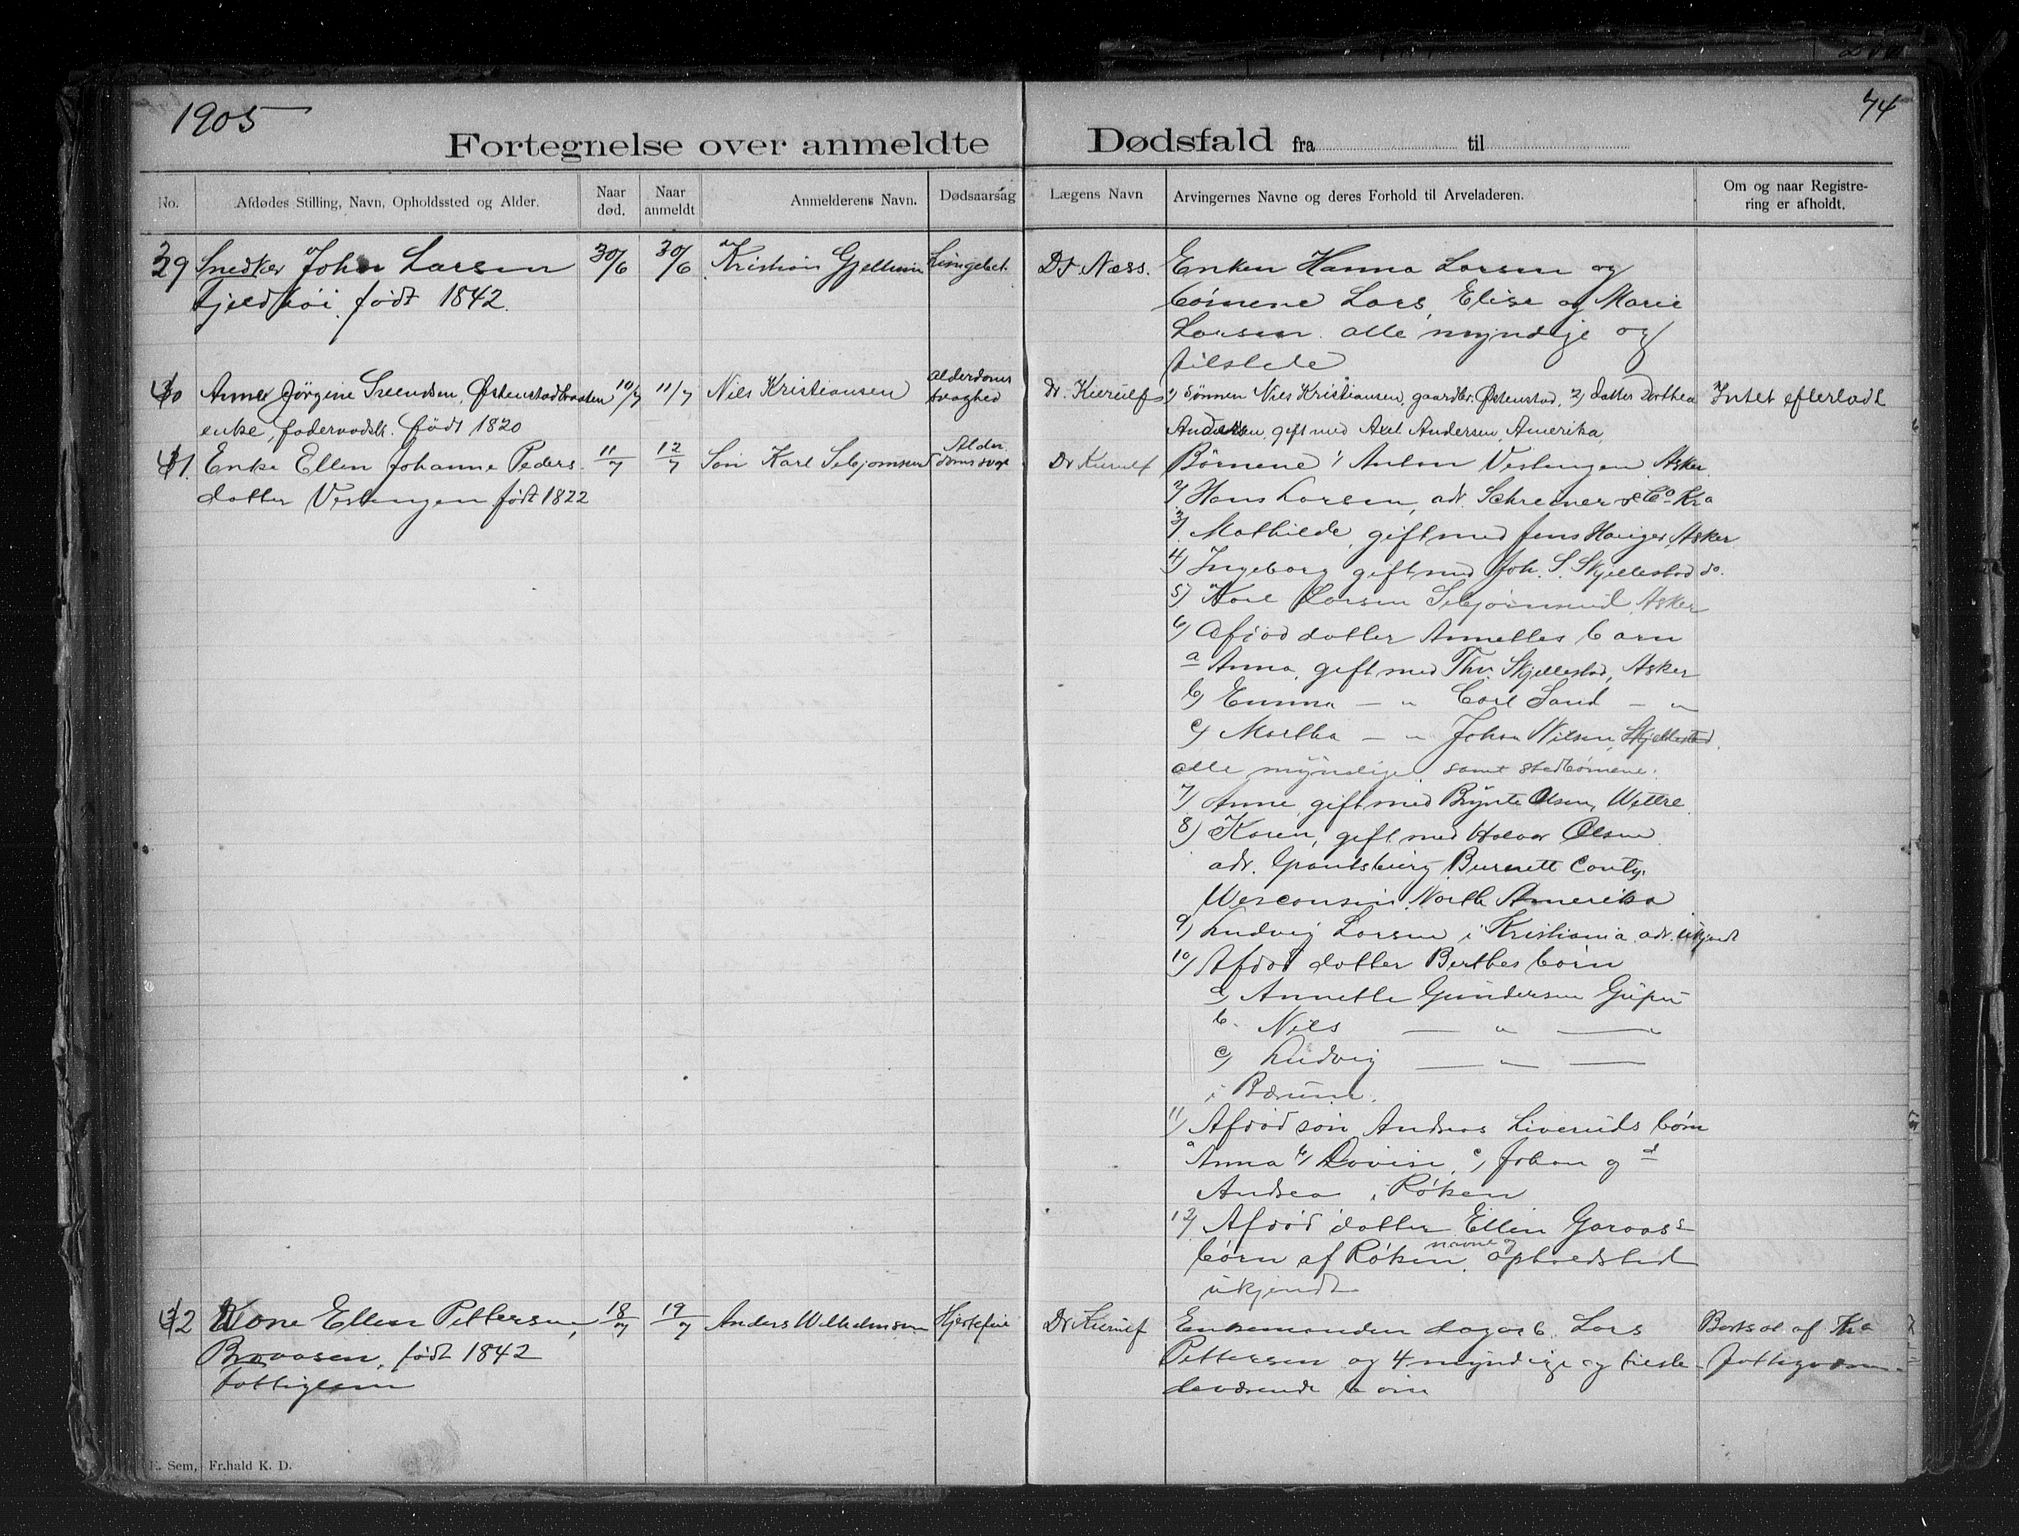 1905
74
Fortegnelse over anmeldte Dødsfald fra til
No.
Afdødes Stilling, Navn, Opholdssted og Alder.
Naar død.
Naar anmeldt
Anmelderens Navn.
Dødsaarsag
Lægens Navn
Arvingernes Navne og deres Forhold til Arveladeren.
Om og naar Registrering er afholdt.
29 Snedker Johan Larsen 30/6 30/6 Kristian Gjellum Lungebet. Dr Næss. Enken Hanna Larsen og
født 1842. børnene Lars, Elise og Marie
Larsen. alle myndige og
tilstede
30 Anne Jørgine Svendsen, Østenstadbraaten 10/7 11/7 Nils Kristiansen Alderdoms Dr. Kierulf 1) Sønnen Nils Kristiansen, gaardbr. Østenstad, 2) datter Dorthea Intet efterladt
enke, født 1820 svaghed Andersen, gift med Axel Andersen, Amerika,
31. Enke Ellen Johanne Peders 11/7 12/7 Søn Karl Dr Kierulf Børnene 1/ Anton Vestengen Asker
datter Vestengen født 1822 2/ Hans Larsen, adr. Schreiner & Co Kra
3/ Mathilde, gift med Jens Asker
4/ Ingeborg gift med Joh. S. Skjellestad do.
5/ Karl Larsen Asker
6/ Afdød datter Annettes barn
a Anna, gift med Thv. Skjellestad, Asker
b) Emma — „ Carl Sand — „
c) Martha — „ Johan Nilsen, Skjellestad.
alle myndige samt stedbørnene.
7/ Anne, gift med Brynte Olsen, Wettre
8) Karen, gift med Halvor Olsen
adr. Grantsburg Burnett Conty.
Wesconsin. North Amerika
9) Ludvig Larsen i Kristiania adr. ukjendt
10/ Afdød datter Berthes børn
a) Annette Gundersen
b. Nils — „ — „
c) Ludvig — „ —
i Bærum.
11) Afdød søn Andreas Liveruds børn
a Anna b/ Lovise, c) Johan og d
Andrea i Røken
12) Afdød datter Ellen
børn af Røken, navne og opholdsted
ukjendt
32 Kone Ellen Pettersen, 18/7 19/7 Anders Wilhelmsen Hjertefeil Dr Kierulf Enkemanden dagarb. Lars
Braasen, født 1842 Pettersen og 4 myndige og tilste- af Kra
fattiglem deværende børn
E. Sem, Fr.hald K. D.